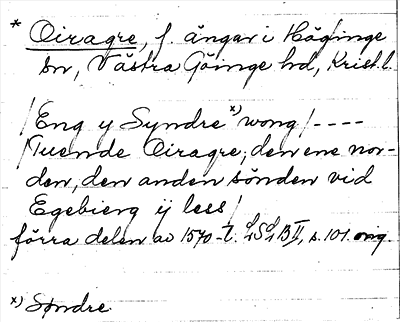 * Oiragre, f. ängar i Häglinge
sn, Västra Göinge hd, Krist. l.
/Eng y Syndre x) wong/ ----
/Tuende Oiragre, den ene nor-
den, den anden sönden vid
Egebierg ij lees/
förra delen av 1570-t. LSLB II, s. 101 orig.
x) Søndre